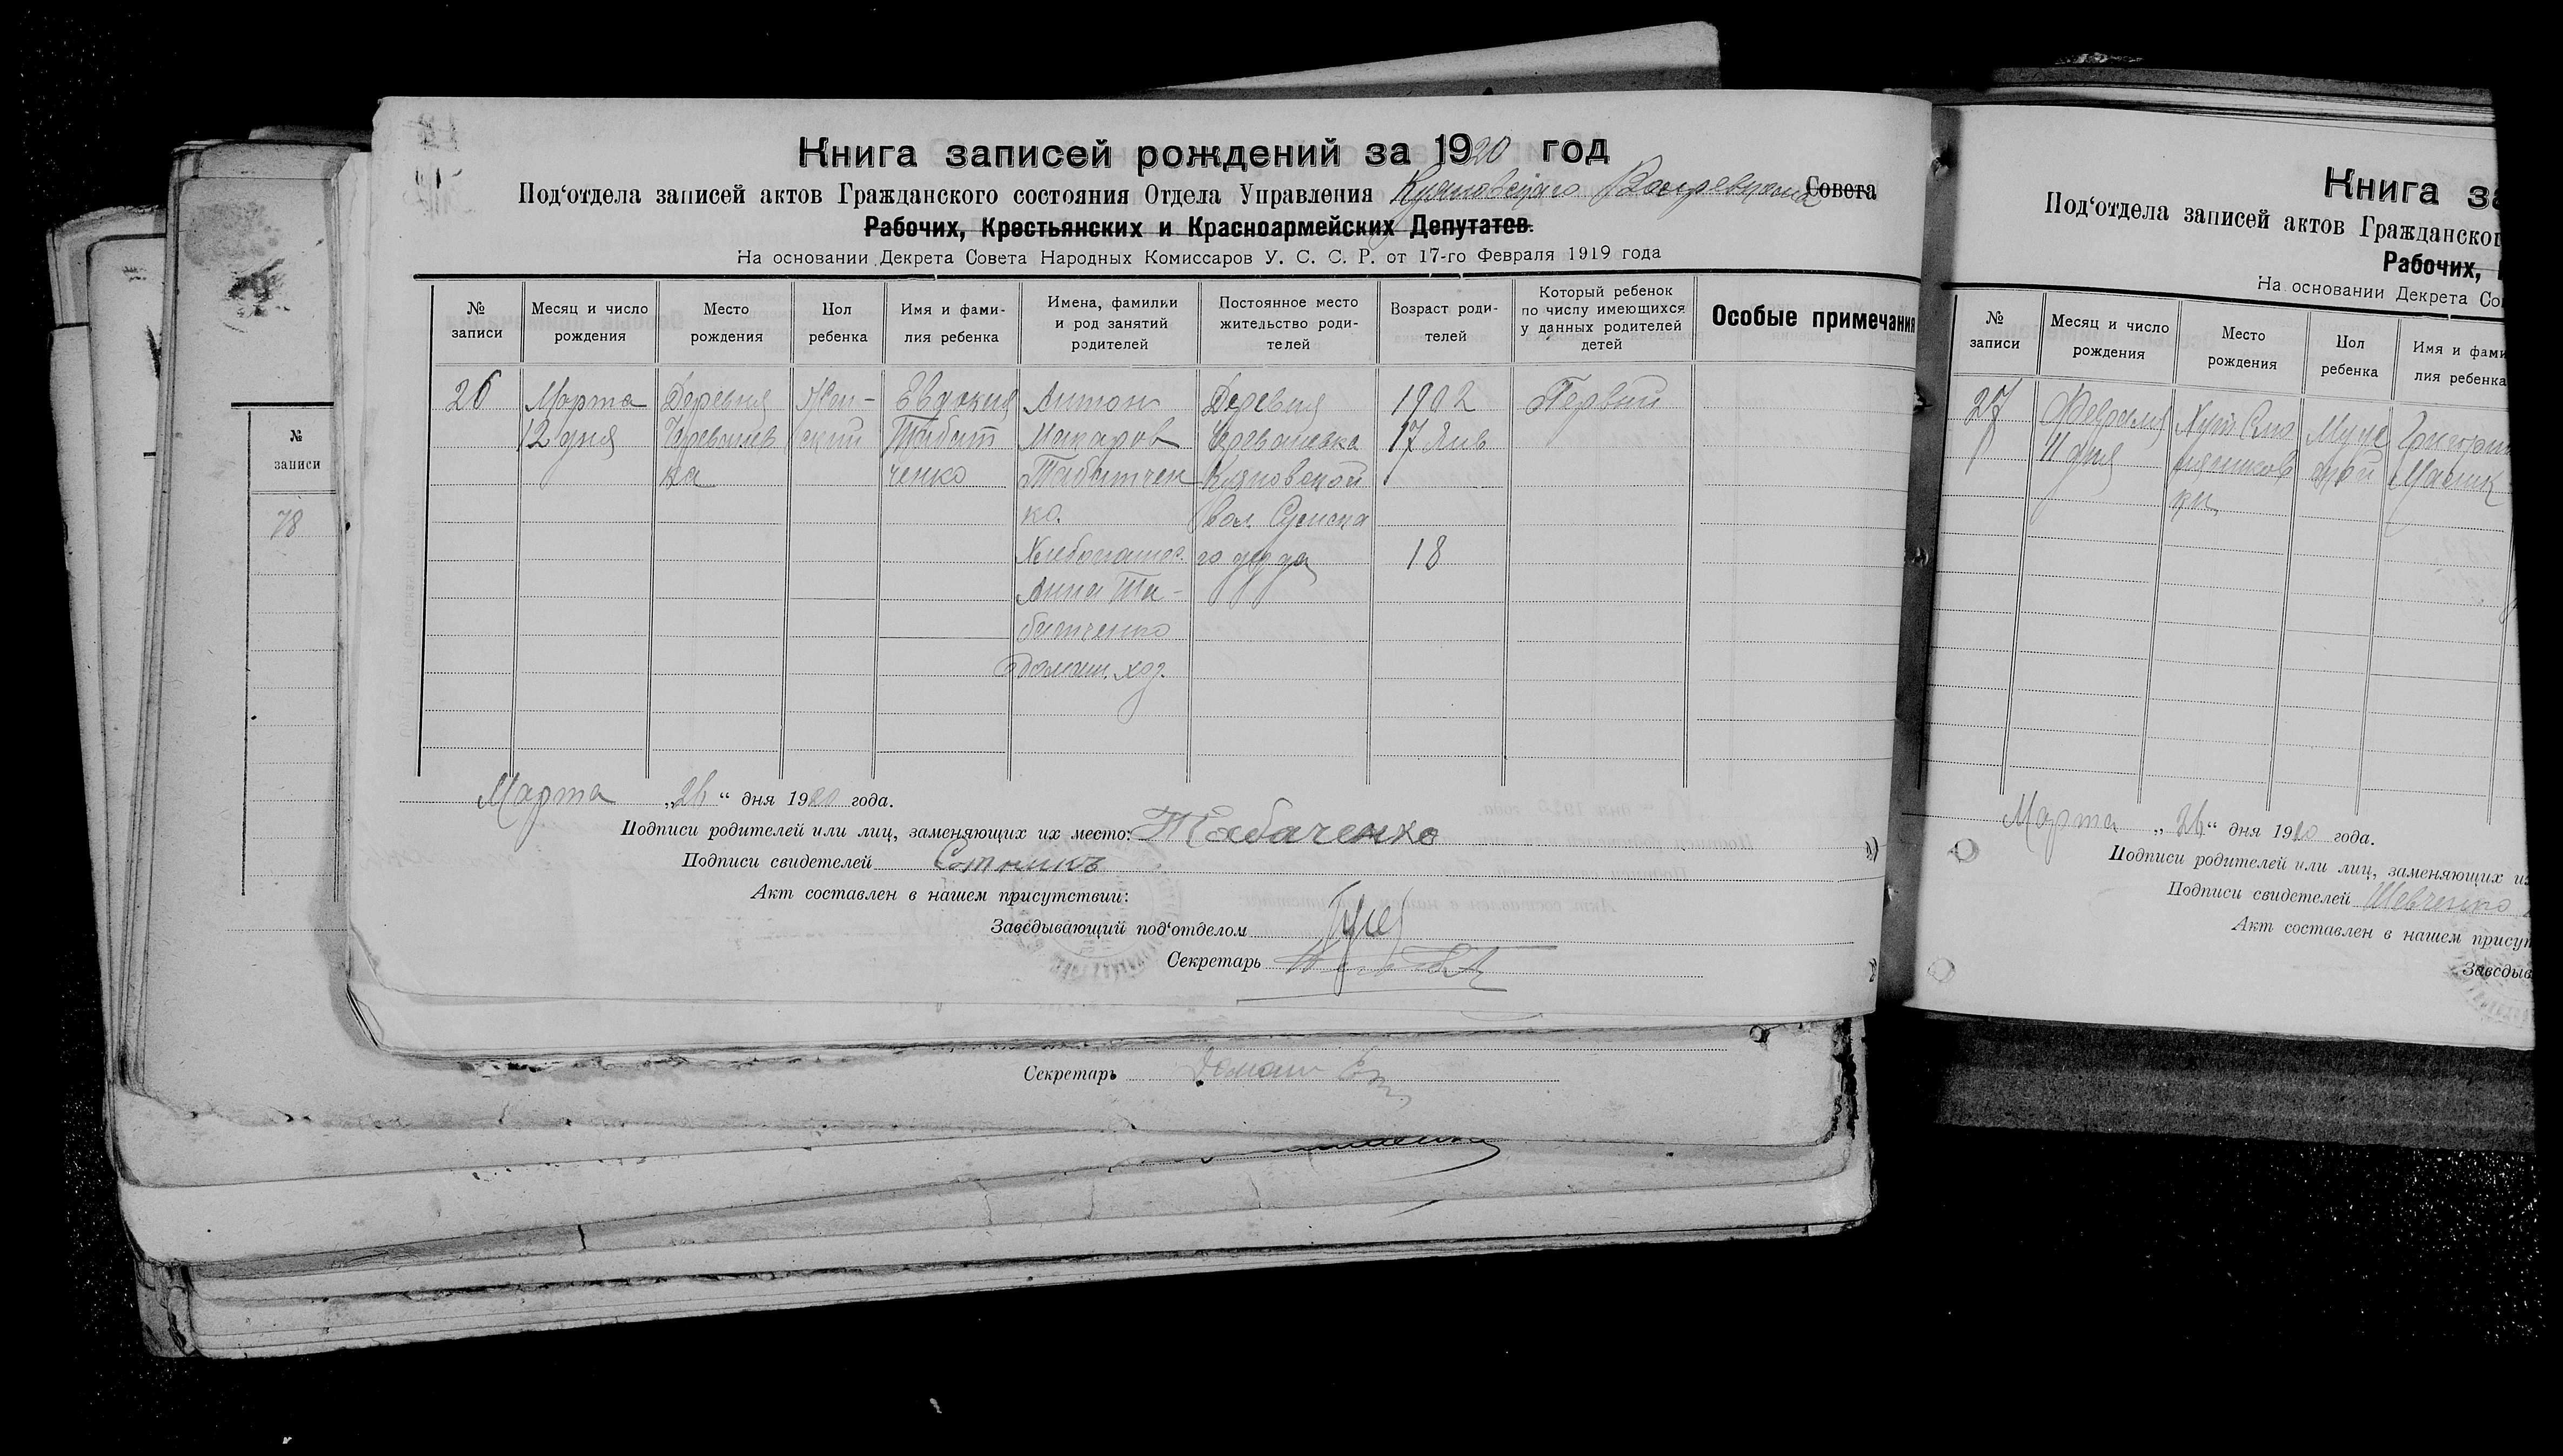 Книга записей рождений за 1920 год
Под‘отдела записей актов Гражданского состояния Отдела Управления Совета
Рабочих, Крестьянских и Красноармейских Депутатев.
На основании Декрета Совета Народных Комиссаров У. С. С. Р. от 17-го Февраля 1919 года
№ записи
Месяц и число рождения
Место рождения
Пол ребенка
Имя и фами-
лия ребенка
Имена, фамилии
и род занятий
родителей
Постоянное место
жительство роди-
телей
Возраст роди-
телей
Который ребенок
по числу имеющихся
у данных родителей
детей
Особые примечания
26
Марта
12 дня
Деревня
ка
Жен-
ский
ченко
Антон
Макаров
ко.
Анна Та-
битченко
домаш. хоз.
Деревня
вол. Сумска
го уезда
1902
17 Янв
18
Первый
Марта „26“ дня 1920 года.
Подписи родителей или лиц, заменяющих их место: Табаченко
Подписи свидетелей Сотникъ
Акт составлен в нашем присутствии:
Заведывающий под‘отделом
Секретарь
Секретарь
№
записи
78
Книга за
Под‘отдела записей актов Гражданског
Рабочих,
На основании Декрета Со
№ записи
Месяц и число
рождения
Место
рождения
Пол
ребенка
Имя и фами
лия ребенка
27
Февраля
11 дня
Хут
ки
Муж
ской
Марта „26“ дня 1920 года.
Подписи родителей или лиц, заменяющих их
Подписи свидетелей Шевченко
Акт составлен в нашем присут
Заведыв